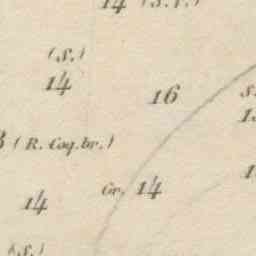 14 (S.F.)
(S.)
14
16
(R. Coq.br.)
Gr. 14
14
(S.)